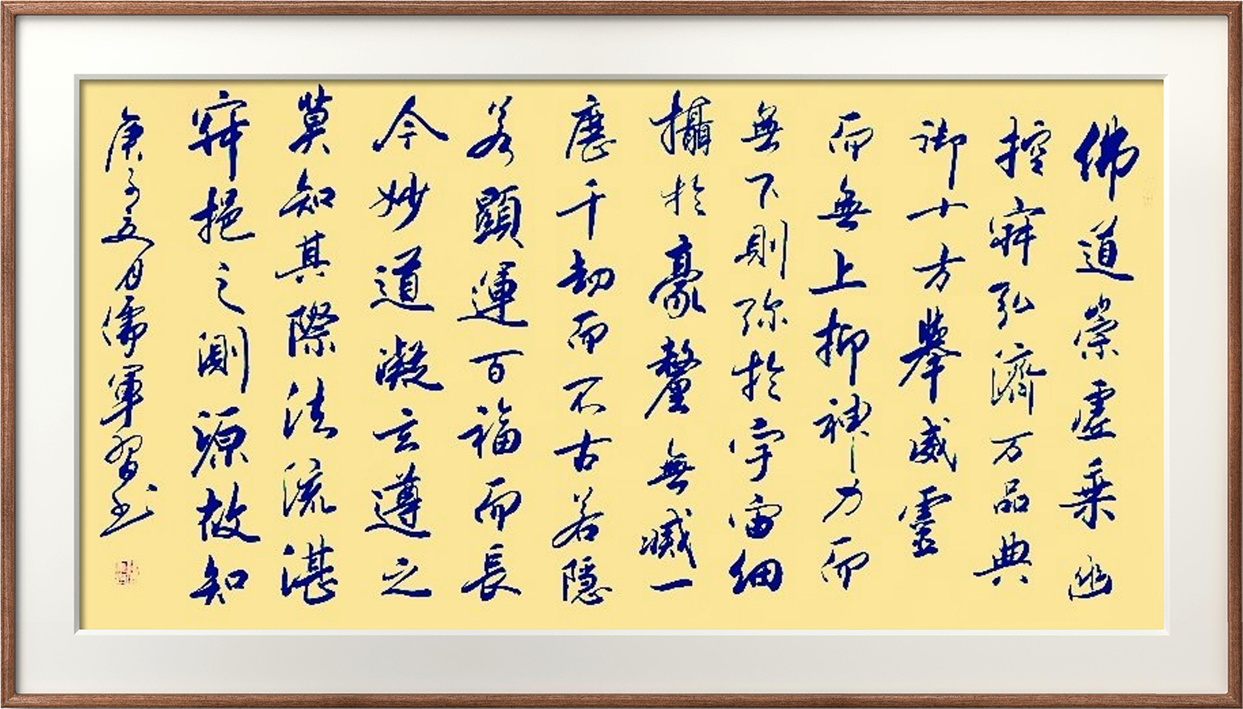 佛道崇虛乘幽
控寂弘濟万品典
御十方舉威靈
而無上抑神力而
無下則弥於宇宙細
攝於豪釐無滅一
歷千劫而不古若隱
若顯運百福而長
今妙道凝玄遵之
莫知其際法流湛
寂挹之測源故知
庚子月儒軍習书